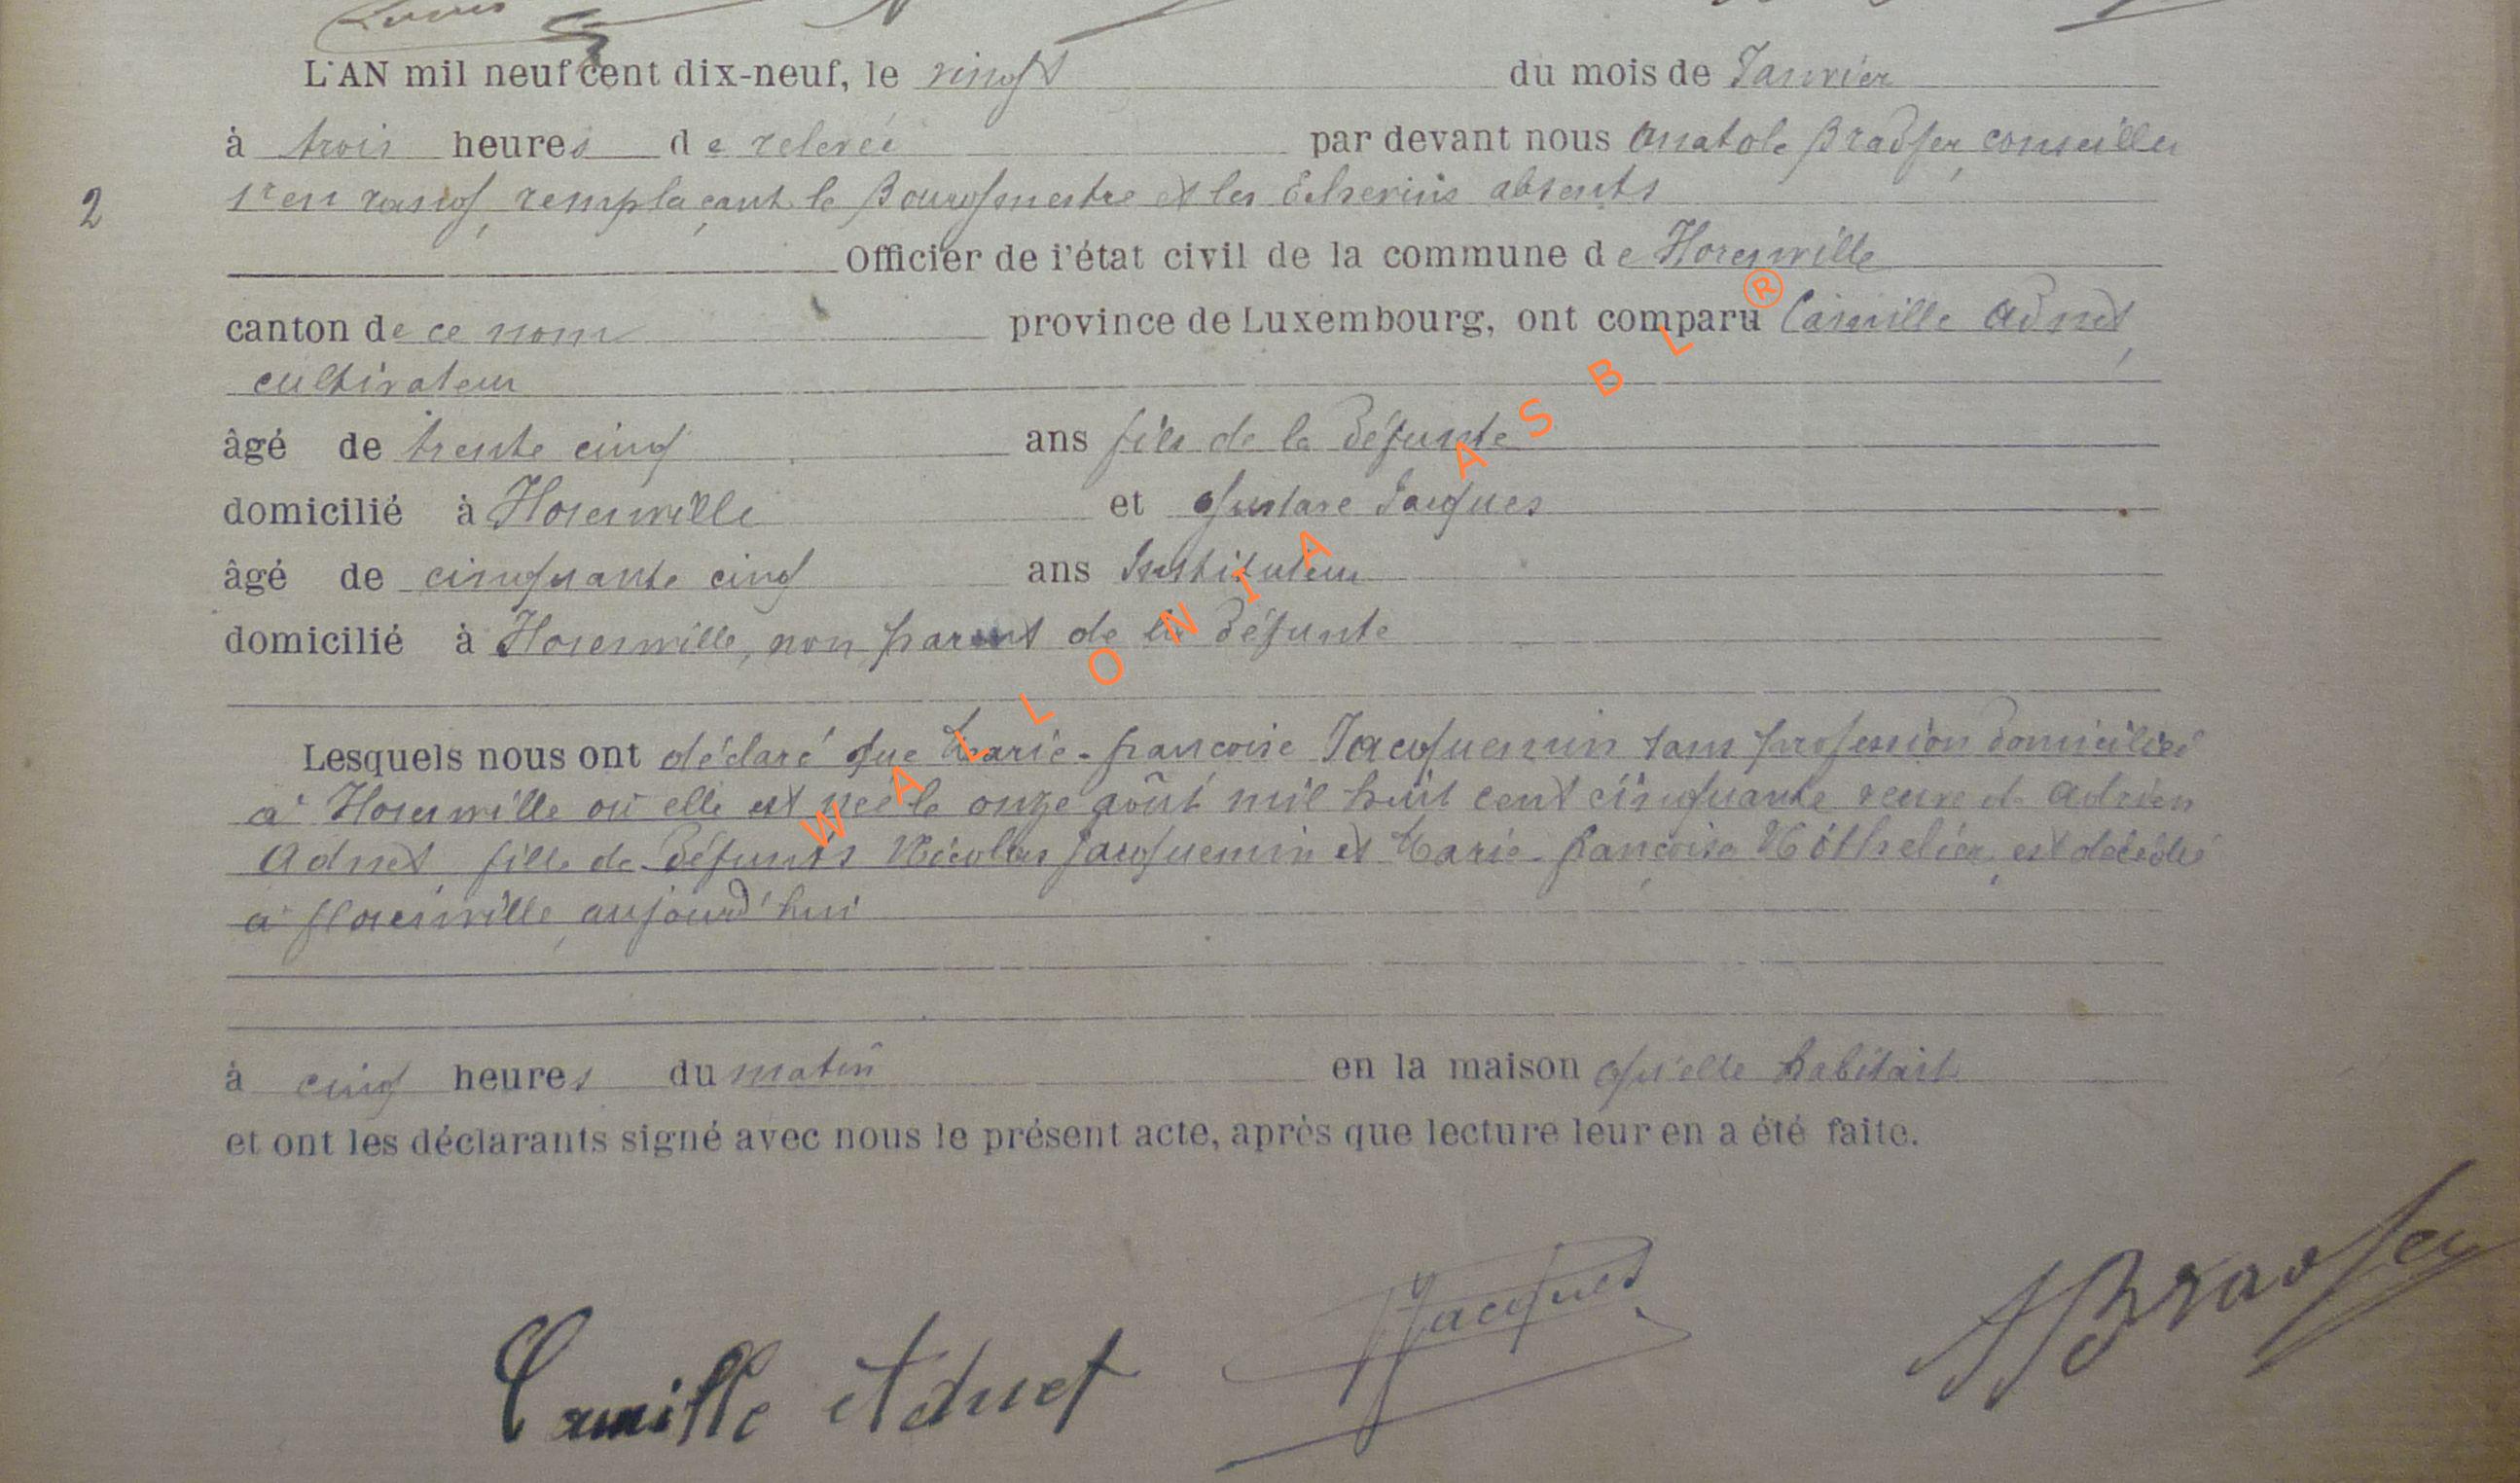 L'AN mil neuf cent dix-neuf, le vingt du mois de Janvier
à trois heures de relevée par devant nous Anatole Bradfer, conseiller
2 1er en rang, remplaçant le Bourgmestre et les Echevins absents
Officier de l'état civil de la commune de Florenville
canton de ce nom province de Luxembourg, ont comparu Camille Adnet,
cultivateur
âgé de trente cinq ans fils de la défunte
domicilié à Florenville et Gustave Jacques
âgé de cinquante cinq ans Instituteur
domicilié à Florenville, non parent de la défunte
Lesquels nous ont déclaré que Marie-françoise Jacquemin sans profession domiciliée
à Florenville où elle est née le onze août mil huit cent cinquante veuve de Adrien
Adnet, fille de défunts Nicolas Jacquemin et Marie-françoise Hothelier, est décédée
à florenville, aujourd'hui
à cinq heures du matin en la maison qu'elle habitait
et ont les déclarants signé avec nous le présent acte, après que lecture leur en a été faite.
Camille Adnet Jacques ABradfer
WALLONIA ASBL ®